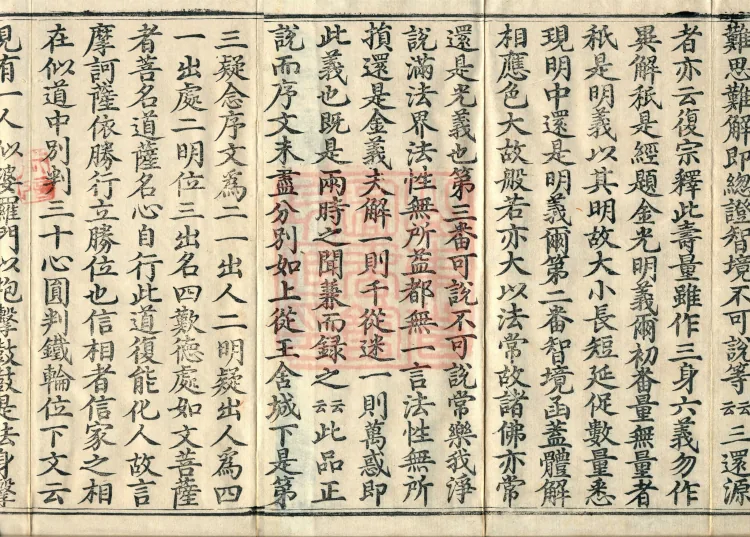 難思難解即總證智境不可說等云云三還源
者亦云復宗釋此壽量雖作三身六義勿作
異解秖是經題金光明義爾初番量無量者
秖是明義以其明故大小長短延促數量悉
現明中還是明義爾第二番智境函蓋體解
相應色大故般若亦大以法常故諸佛亦常
還是光義也第三番可說不可說常樂我淨
說滿法界法性無所益都無一言法性無所
損還是金義夫解一則千從迷一則萬惑即
此義也既是兩時之聞兼而録之云云此品正
說而序文未盡分別如上從王舍城下是第
三疑念序文爲二一出人二明疑出人爲四
一出處二明位三出名四歎德處如文菩薩
者菩名道薩名心自行此道復能化人故言
摩訶薩依勝行立勝位也信相者信家之相
在似道中別判三十心圓判鐵輪位下文云
見有一人似婆羅門以枹擊鼓鼓是法身擊